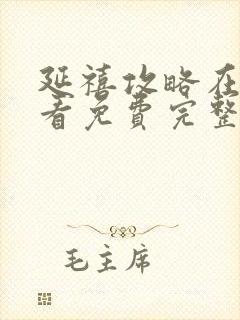 延禧攻略在
看免费完整
毛主席